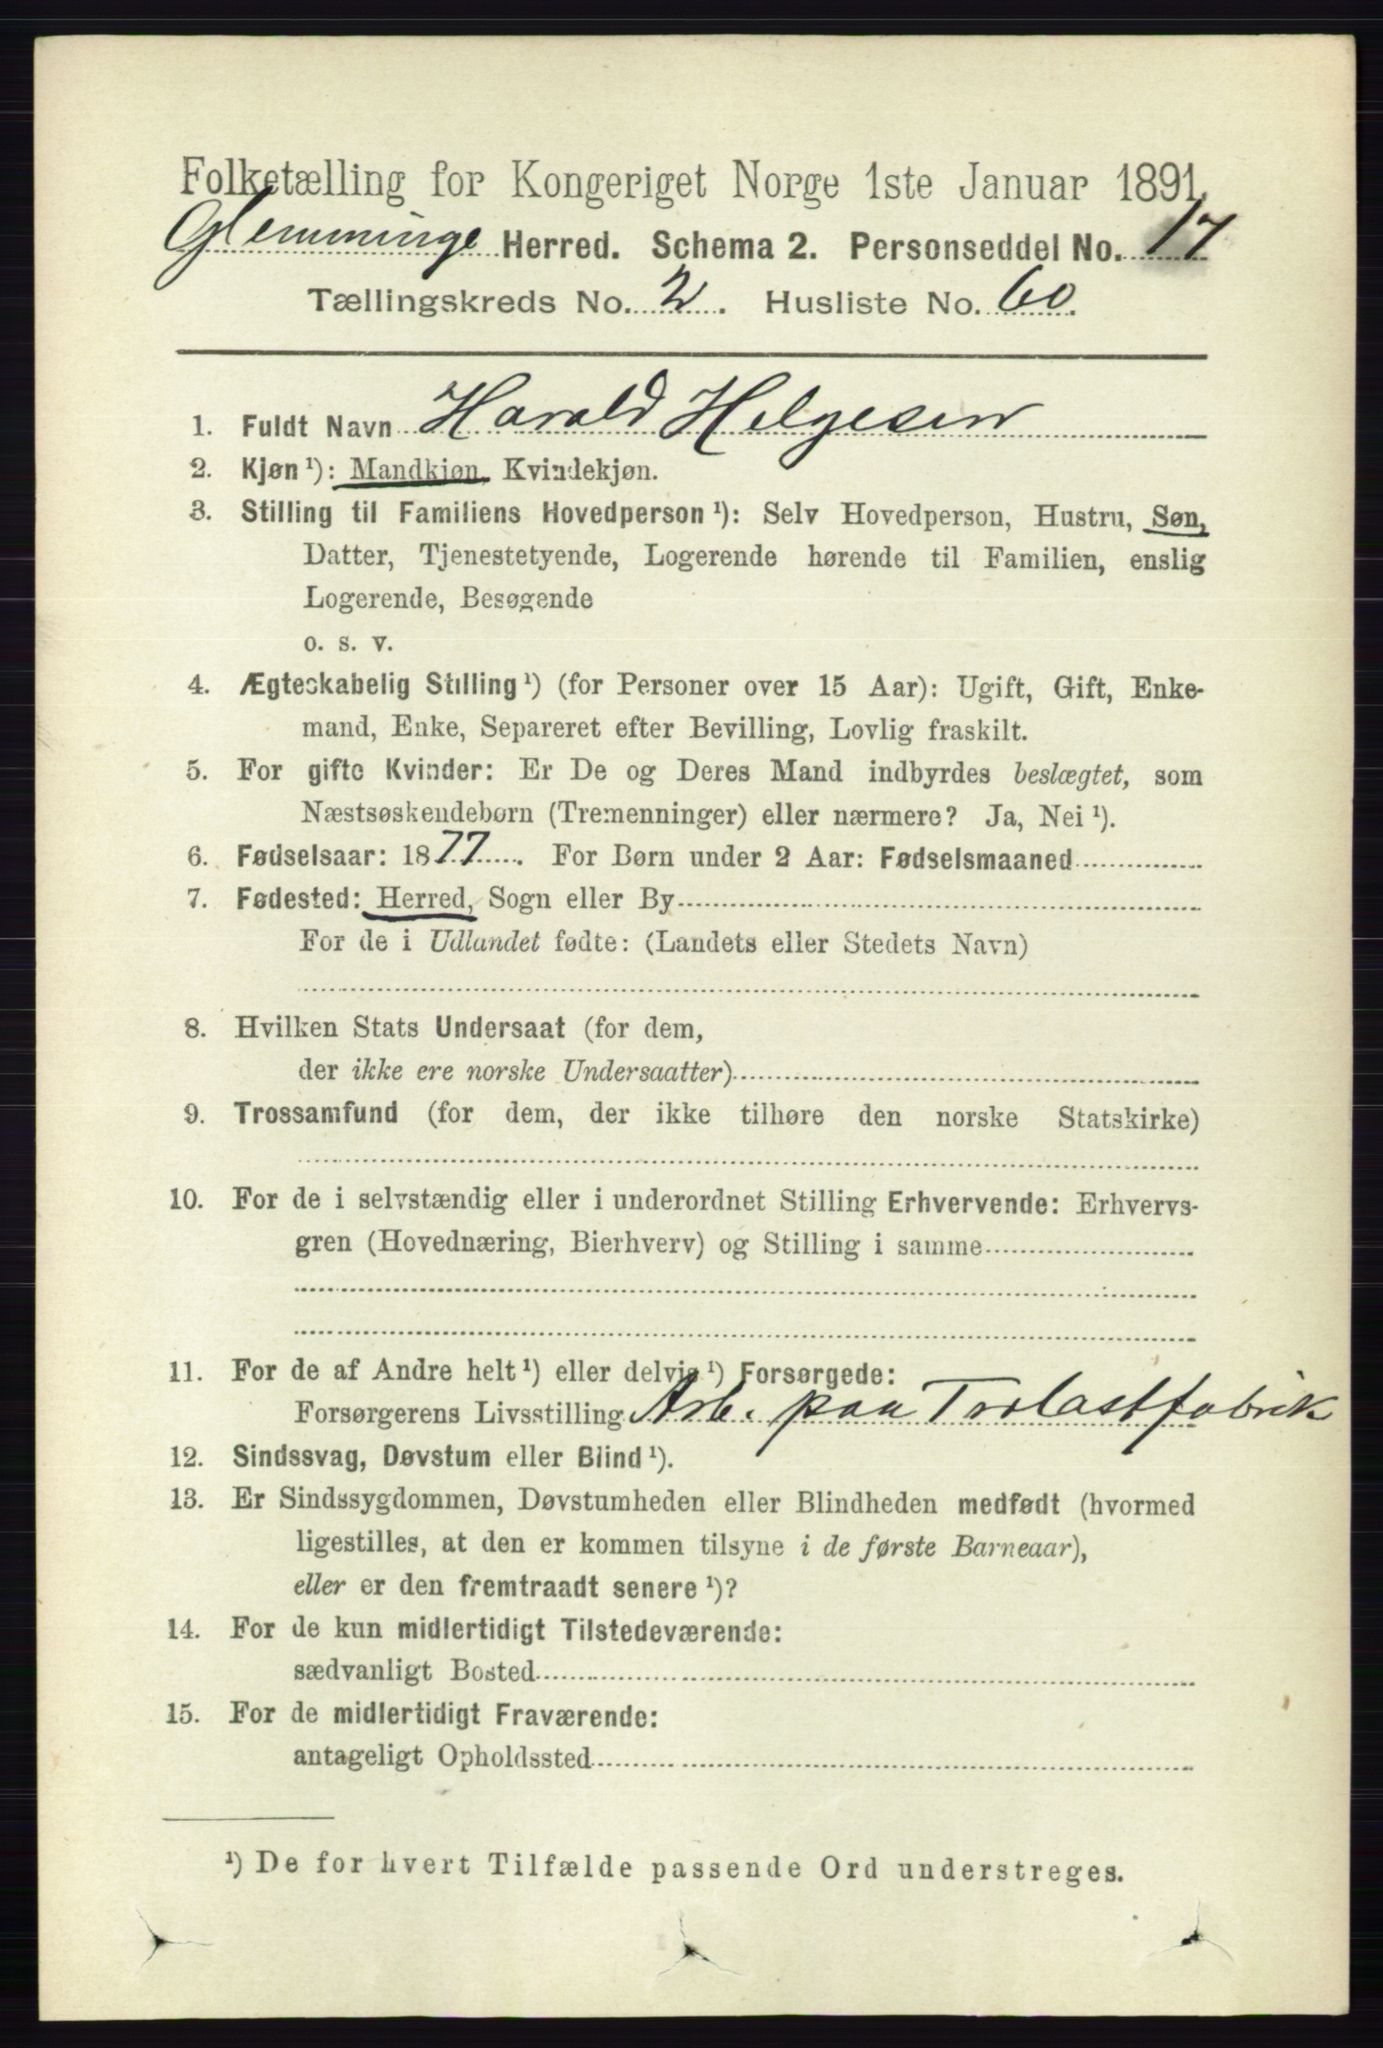 Folketælling for Kongeriget Norge 1ste Januar 1891.
Glemminge Herred. Schema 2. Personseddel No. 17
Tællingskreds No. 2. Husliste No. 60.
1. Fuldt Navn Harald Helgesen
2. Kjøn ¹): Mandkjøn, Kvindekjøn.
3. Stilling til Familiens Hovedperson ¹): Selv Hovedperson, Hustru, Søn,
Datter, Tjenestetyende, Logerende hørende til Familien, enslig
Logerende, Besøgende
o. s. v.
4. Ægteskabelig Stilling ¹) (for Personer over 15 Aar): Ugift, Gift, Enke-
mand, Enke, Separeret efter Bevilling, Lovlig fraskilt.
5. For gifte Kvinder: Er De og Deres Mand indbyrdes beslægtet, som
Næstsøskendebørn (Tremenninger) eller nærmere? Ja, Nei ¹).
6. Fødselsaar: 1877. For Børn under 2 Aar: Fødselsmaaned
7. Fødested: Herred, Sogn eller By
For de i Udlandet fødte: (Landets eller Stedets Navn)
8. Hvilken Stats Undersaat (for dem,
der ikke ere norske Undersaatter)
9. Trossamfund (for dem, der ikke tilhøre den norske Statskirke)
10. For de i selvstændig eller i underordnet Stilling Erhvervende: Erhvervs-
gren (Hovednæring, Bierhverv) og Stilling i samme
11. For de af Andre helt ¹) eller delvig ¹) Forsørgede:
Forsørgerens Livsstilling Arb. paa Trolastfabrik
12. Sindssvag, Døvstum eller Blind ¹).
13. Er Sindssygdommen, Døvstumheden eller Blindheden medfødt (hvormed
ligestilles, at den er kommen tilsyne i de første Barneaar),
eller er den fremtraadt senere ¹)?
14. For de kun midlertidigt Tilstedeværende:
sædvanligt Bosted
15. For de midlertidigt Fraværende:
antageligt Opholdssted
¹) De for hvert Tilfælde passende Ord understreges.